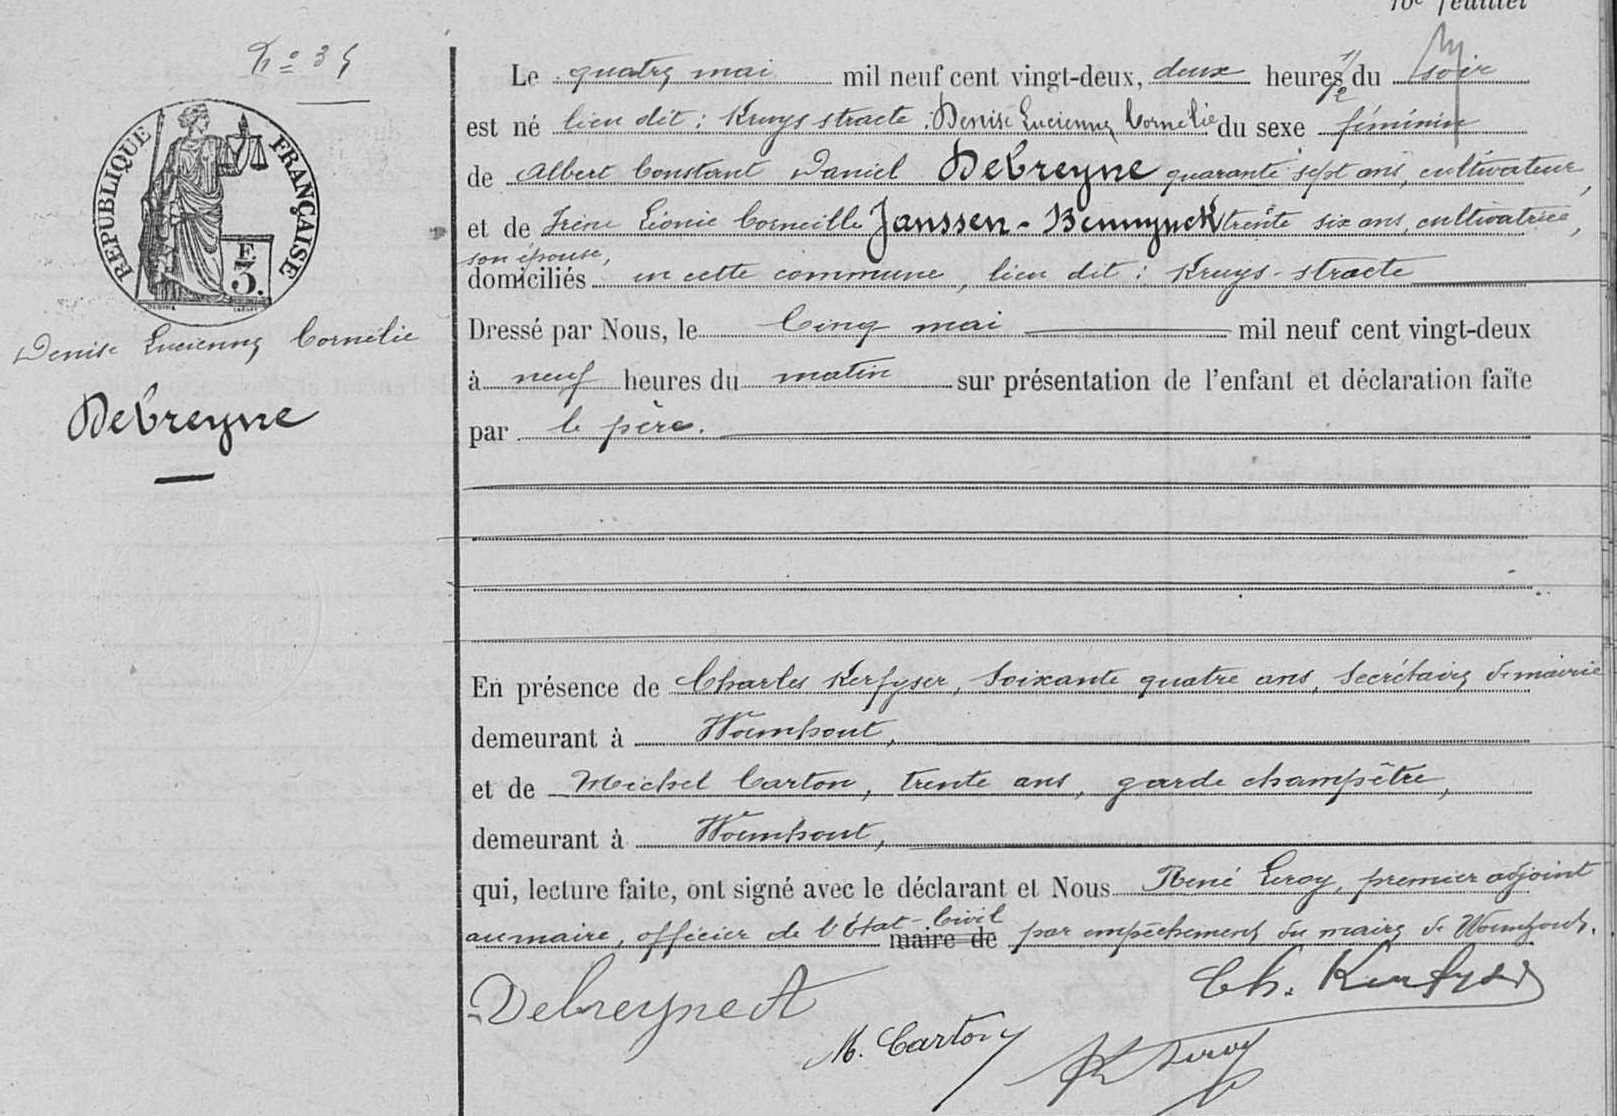 10e feuillet
No 35
RÉPUBLIQUE FRANÇAISE
F.
3.
Denise Lucienne Cornélie
Debreyne
Le quatre mai mil neuf cent vingt-deux, deux heures 1/2 du soir
est né lieu dit : Kruys stracte : Denise Lucienne Cornélie du sexe féminin
de Albert Constant Daniel Debreyne quarante sept ans, cultivateur,
et de Irène Léonie Corneille Janssen-Bennynck trente six ans, cultivatrice,
son épouse,
domiciliés en cette commune, lieu dit : Kruys-stracte
Dressé par Nous, le Cinq mai mil neuf cent vingt-deux
à neuf heures du matin sur présentation de l'enfant et déclaration faite
par le père.
En présence de Charles Kerfyser, soixante quatre ans, secrétaire de mairie
demeurant à Wormhout,
et de Michel Carton, trente ans, garde champêtre,
demeurant à Wormhout,
qui, lecture faite, ont signé avec le déclarant et Nous René Leroy, premier adjoint
au maire, officier de l'État-Civil maire de par empêchement du maire de Wormhout.
Debreyne A
Ch. Kerfyser
M. Carton
R Leroy